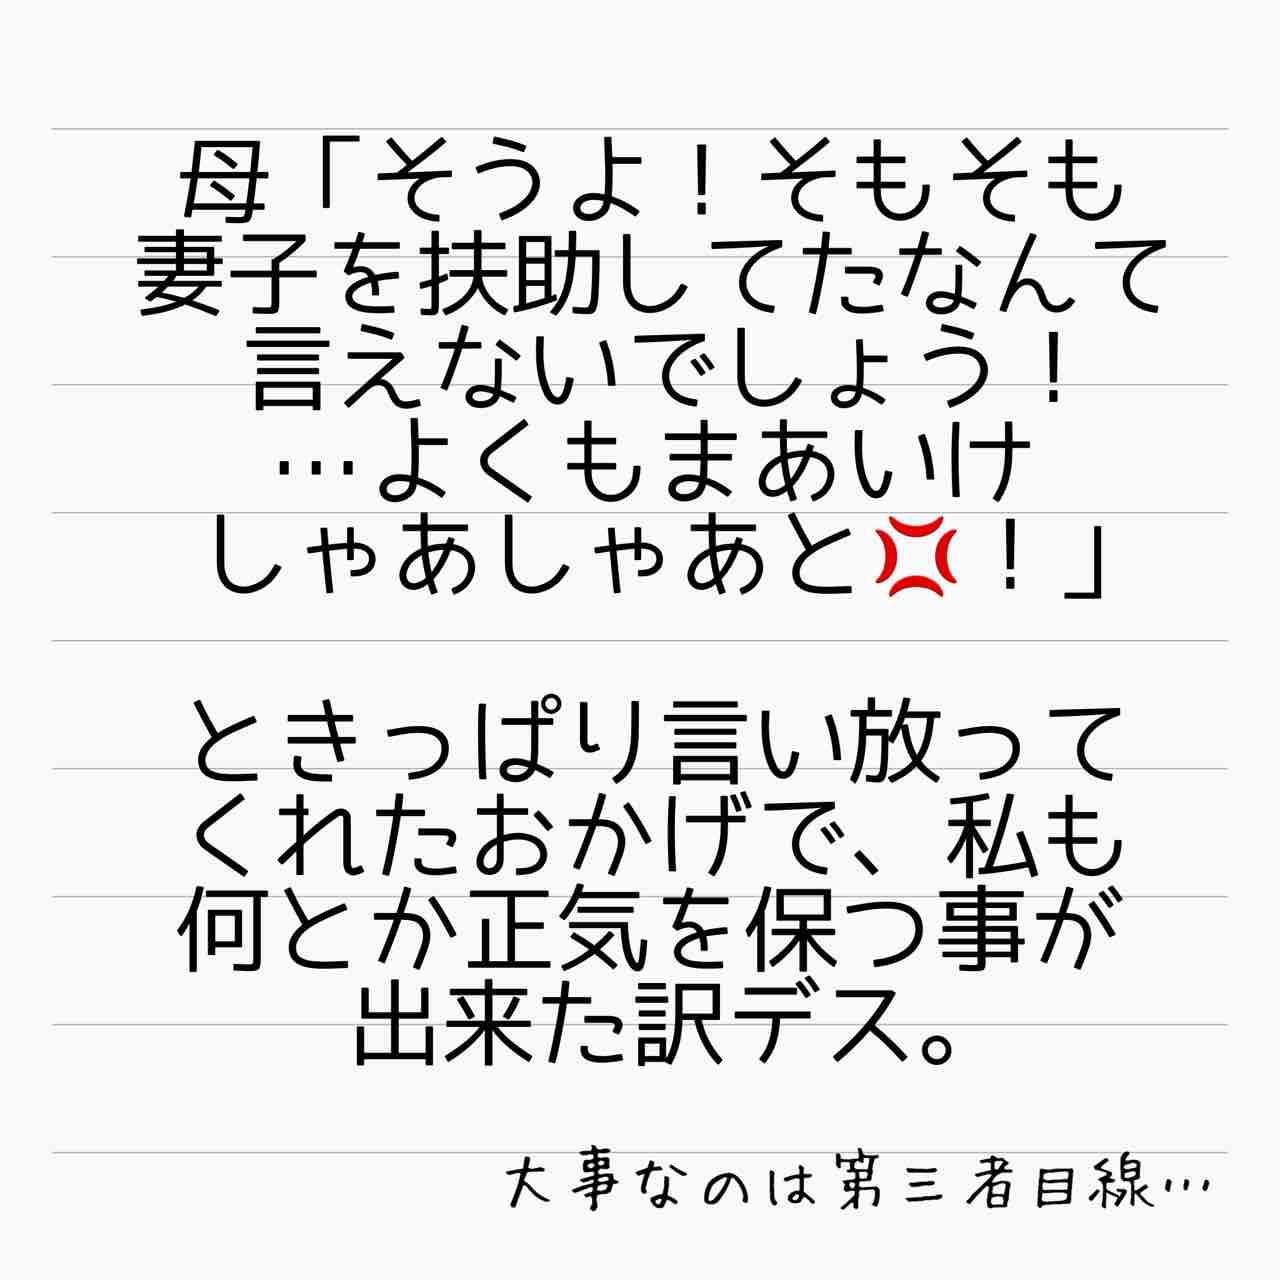 母「そうよ！そもそも
妻子を扶助してたなんて
言えないでしょう！
…よくもまあいけ
しゃあしゃあと💢！」
ときっぱり言い放って
くれたおかげで、私も
何とか正気を保つ事が
出来た訳デス。
大事なのは第三者目線…